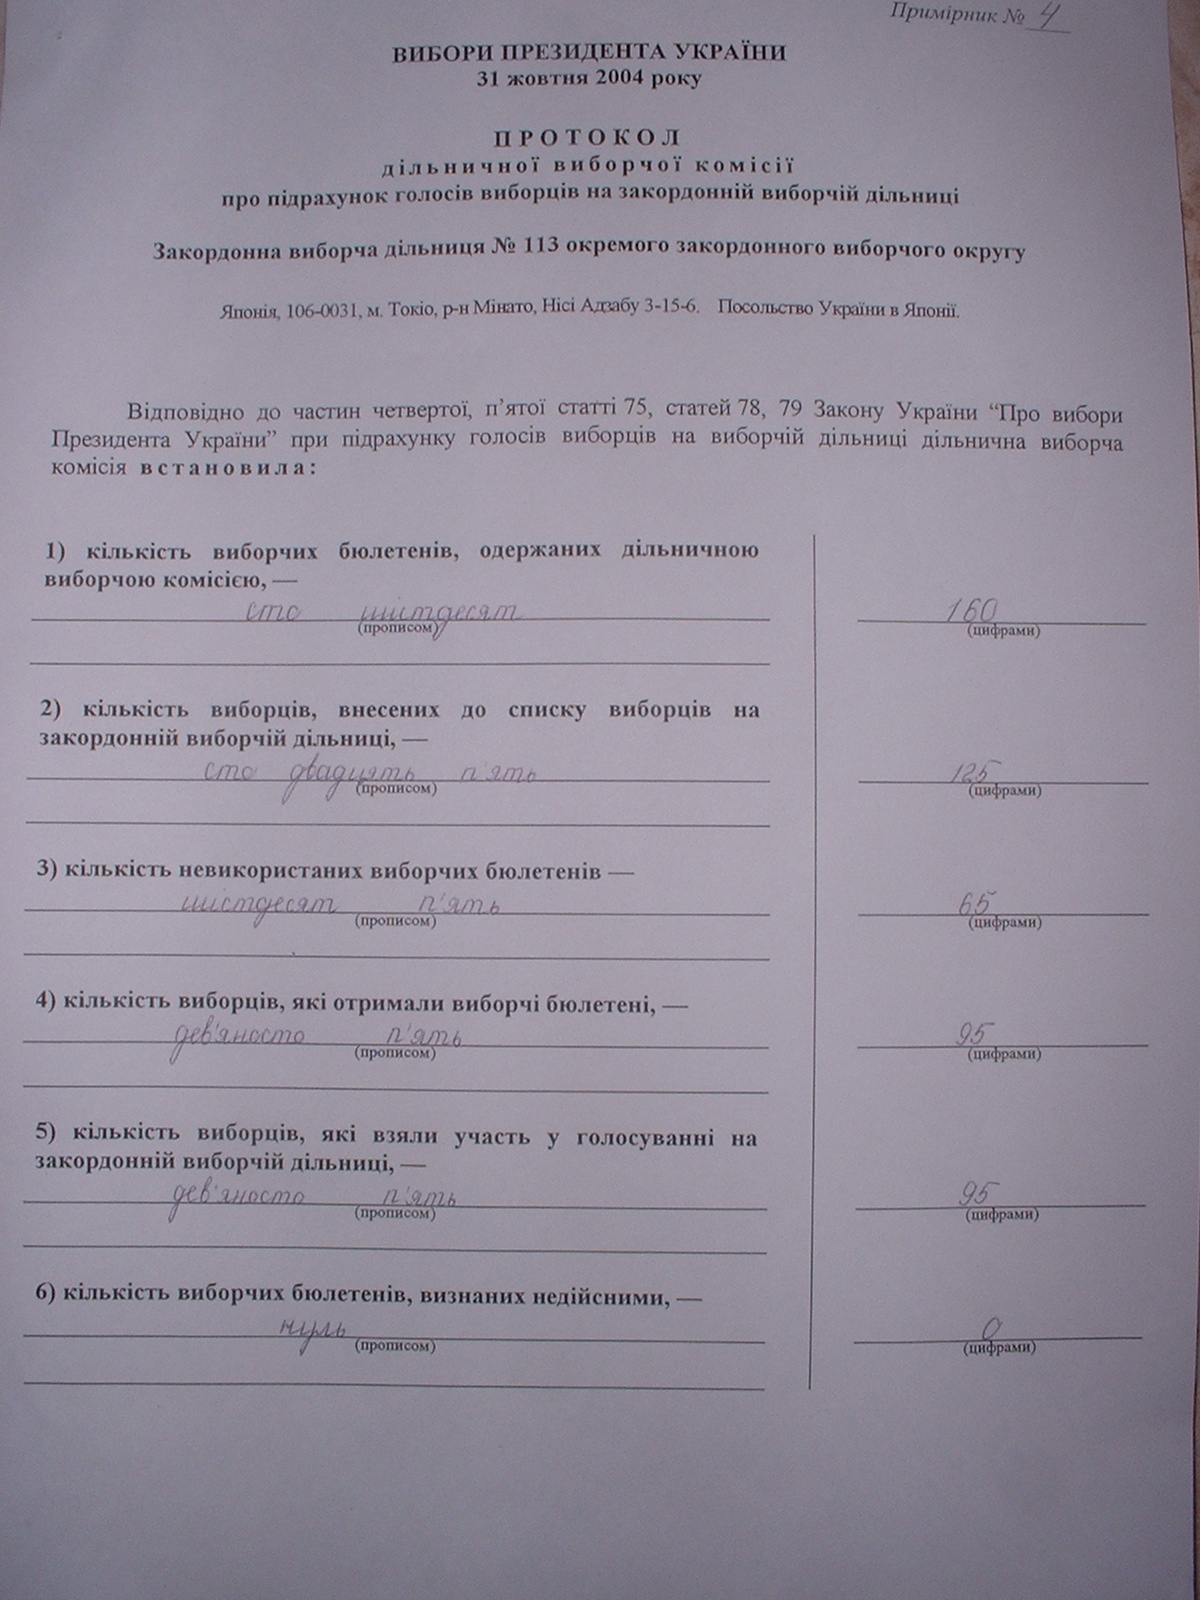 Примірник № 4
ВИБОРИ ПРЕЗИДЕНТА УКРАЇНИ
31 жовтня 2004 року
ПРОТОКОЛ
дільничної виборчої комісії
про підрахунок голосів виборців на закордонній виборчій дільниці
Закордонна виборча дільниця № 113 окремого закордонного виборчого округу
Японія, 106-0031, м. Токіо, р-н Мінато, Нісі Адзабу 3-15-6. Посольство України в Японії.
Відповідно до частин четвертої, п’ятої статті 75, статей 78, 79 Закону України “Про вибори
Президента України” при підрахунку голосів виборців на виборчій дільниці дільнична виборча
комісія встановила:
1) кількість виборчих бюлетенів, одержаних дільничною
виборчою комісією, —
сто шістдесят 160
(прописом) (цифрами)
2) кількість виборців, внесених до списку виборців на
закордонній виборчій дільниці, —
сто двадцять п'ять 125
(прописом) (цифрами)
3) кількість невикористаних виборчих бюлетенів —
шістдесят п'ять 65
(прописом) (цифрами)
4) кількість виборців, які отримали виборчі бюлетені, —
дев'яносто п'ять 95
(прописом) (цифрами)
5) кількість виборців, які взяли участь у голосуванні на
закордонній виборчій дільниці, —
дев'яносто п'ять 95
(прописом) (цифрами)
6) кількість виборчих бюлетенів, визнаних недійсними, —
нуль 0
(прописом) (цифрами)